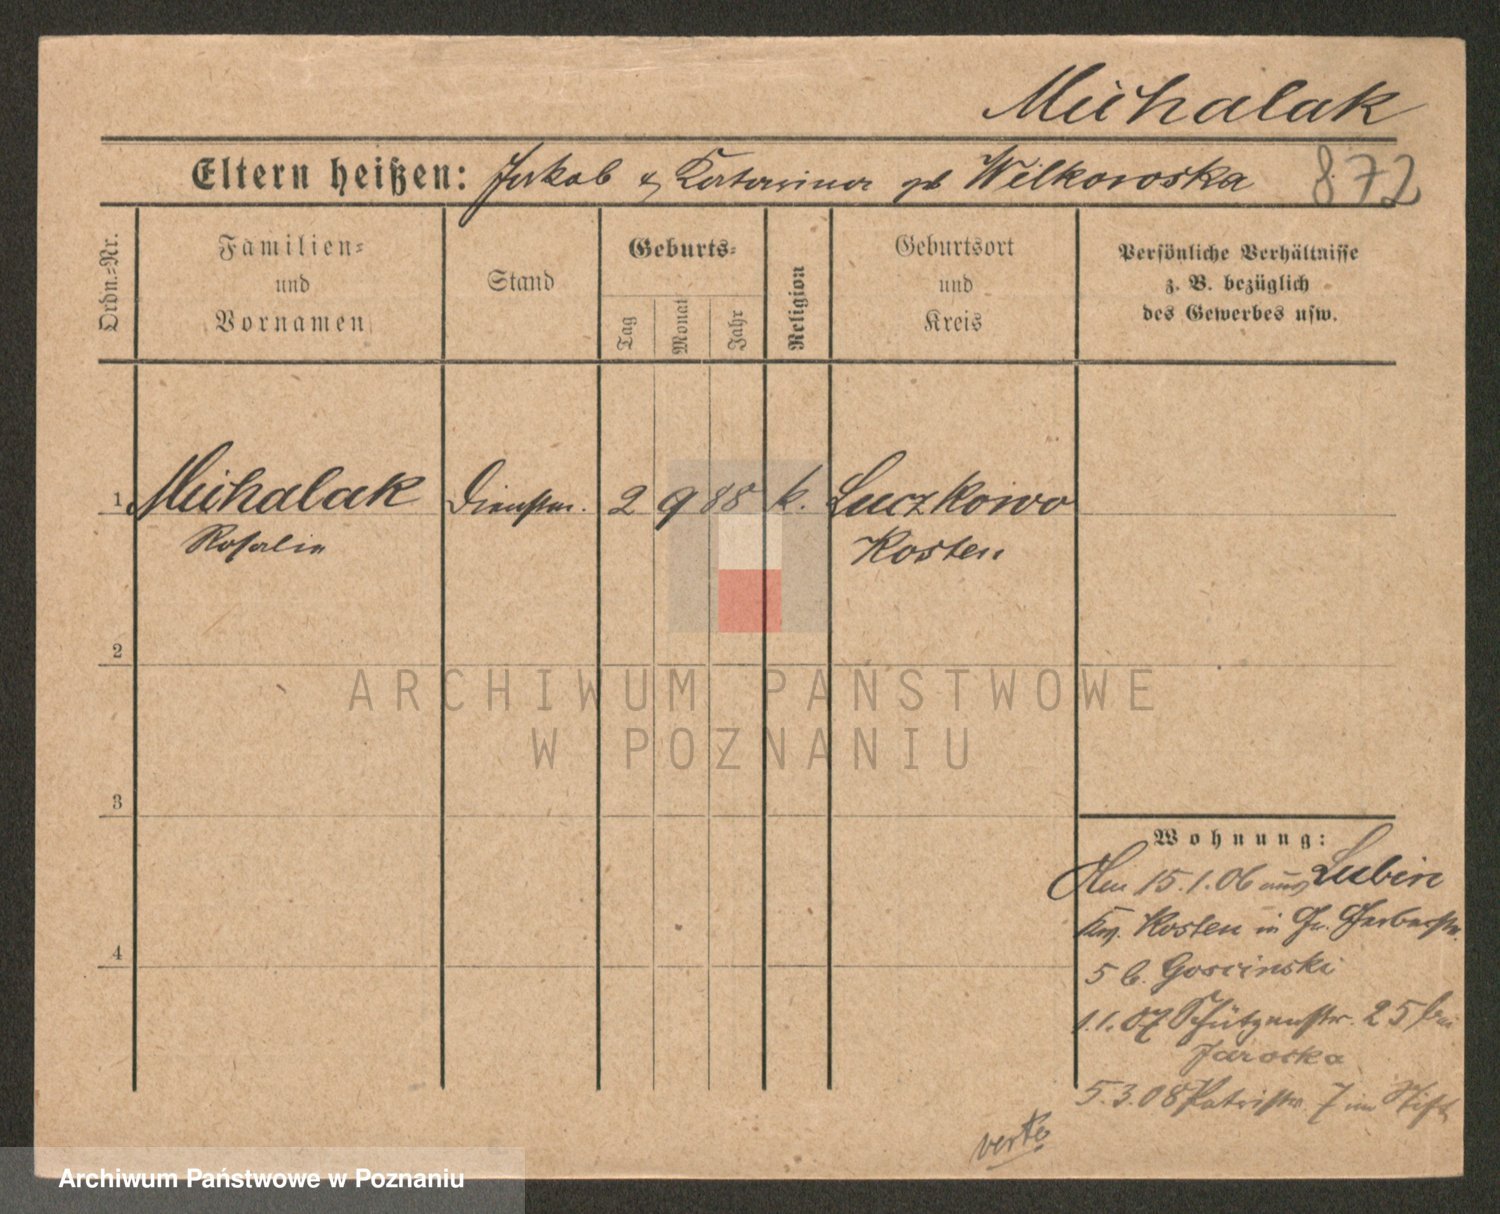 Michalak
Eltern heißen: Jakob & Katarina gb Wilkowska 872
Ordn.=Nr.
Familien=
und
Vornamen
Stand
Geburts=
Tag
Monat
Jahr
Religion
Geburtsort
und
Kreis
Persönliche Verhältnisse
z. B. bezüglich
des Gewerbes usw.
1 Michalak Dienstm. 2 9 88 k. Luczkowo
Rosalie Kosten
2
ARCHIWUM PAŃSTWOWE
W POZNANIU
3
Wohnung:
15.1.06 aus Lubin
Kosten in Gr. Gerberstr.
5 b. Goscinski
1.1.07 Schützenstr. 25 bei
Jaroska
5.3.08 7 im Stift
4
Archiwum Państwowe w Poznaniu